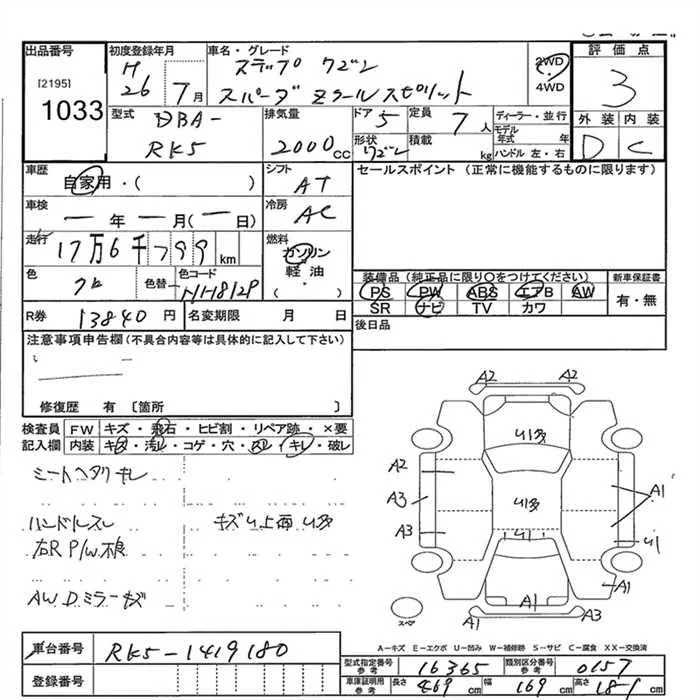 出品番号
[2195]
1033
初度登録年月
H26 7月
車名・グレード
ステップ ワゴン
スパーダ Zクールスピリット
2WD
4WD
評価点
3
外装 内装
D C
型式
DBA-
RK5
排気量
2000cc
ドア 5
形状 ワゴン
定員 7人
積載 kg
ディーラー・並行
モデル年式 年
ハンドル 左・右
車歴
自家用・( )
シフト
AT
セールスポイント (正常に機能するものに限ります)
車検
ー年ー月(ー日)
冷房
AC
走行
17万6千799km
燃料
ガソリン
軽油
・
( )
色
クロ
色替
色コード
NH812P
装備品(純正品に限り○をつけてください)
新車保証書
PS PW ABS エアB AW
SR ナビ TV カワ
有・無
R券 13840円
名変期限 月 日
後日品
注意事項申告欄(不具合内容等は具体的に記入して下さい)
修復歴 有〔箇所 〕
検査員記入欄
FW キズ・飛石・ヒビ割・リペア跡・×要
内装 キズ・汚れ・コゲ・穴・スレ・キレ・破レ
シートヘタリ キレ
ハンドルスレ
キズ U 上面 U多
右R P/W不良
AW Dミラーキズ
A2 A2
U多
A2
A3 U多 A1
A3 U1 U1
A1
A1 A3
スペア
A-キズ E-エクボ U-凹み W-補修跡 S-サビ C-腐食 XX-交換済
車台番号 RK5-1419180
登録番号
型式指定番号 参考 16365
類別区分番号 参考 0157
車庫証明用 参考 長さ 469cm 幅 169cm 高さ